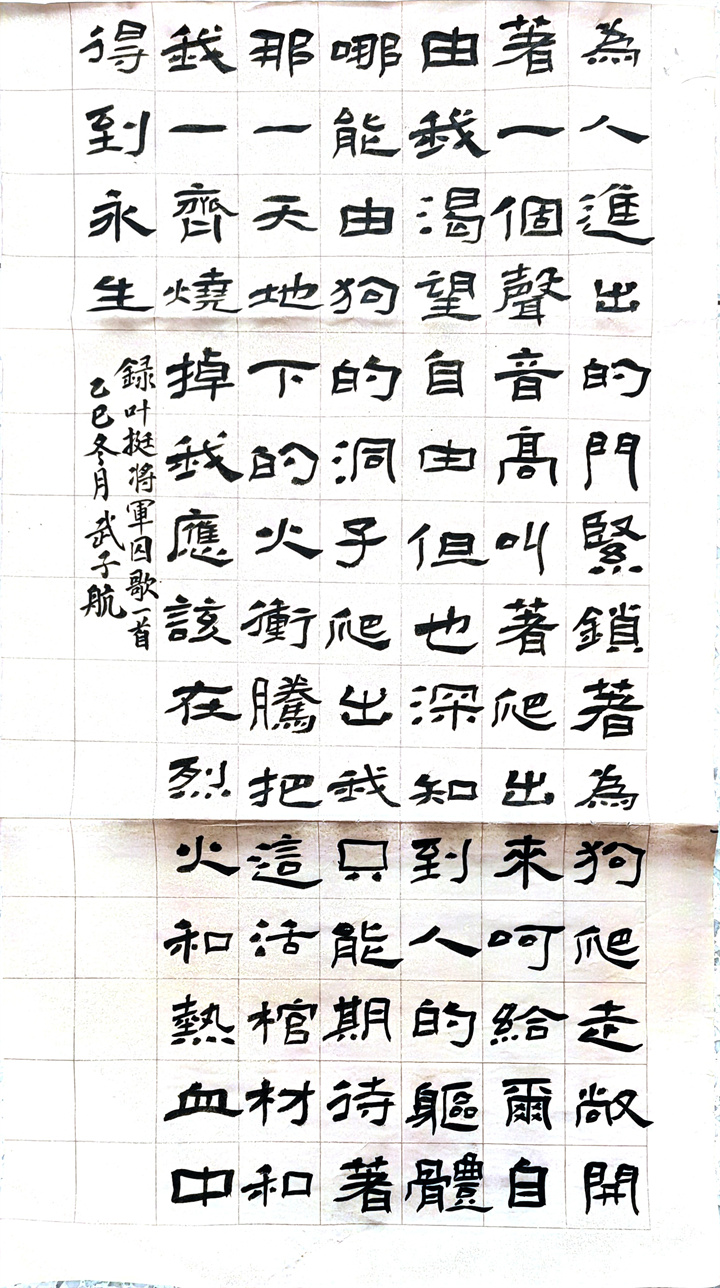 為人進出的門緊鎖著為狗爬走敞開
著一個聲音高叫著爬出來呵給爾自
由我渴望自由但也深知到人的軀體
哪能由狗的洞子爬出我只能期待著
那一天地下的火衝騰把這活棺材和
我一齊燒掉我應該在烈火和熱血中
得到永生
録叶挺将軍囚歌一首
乙巳冬月武子航